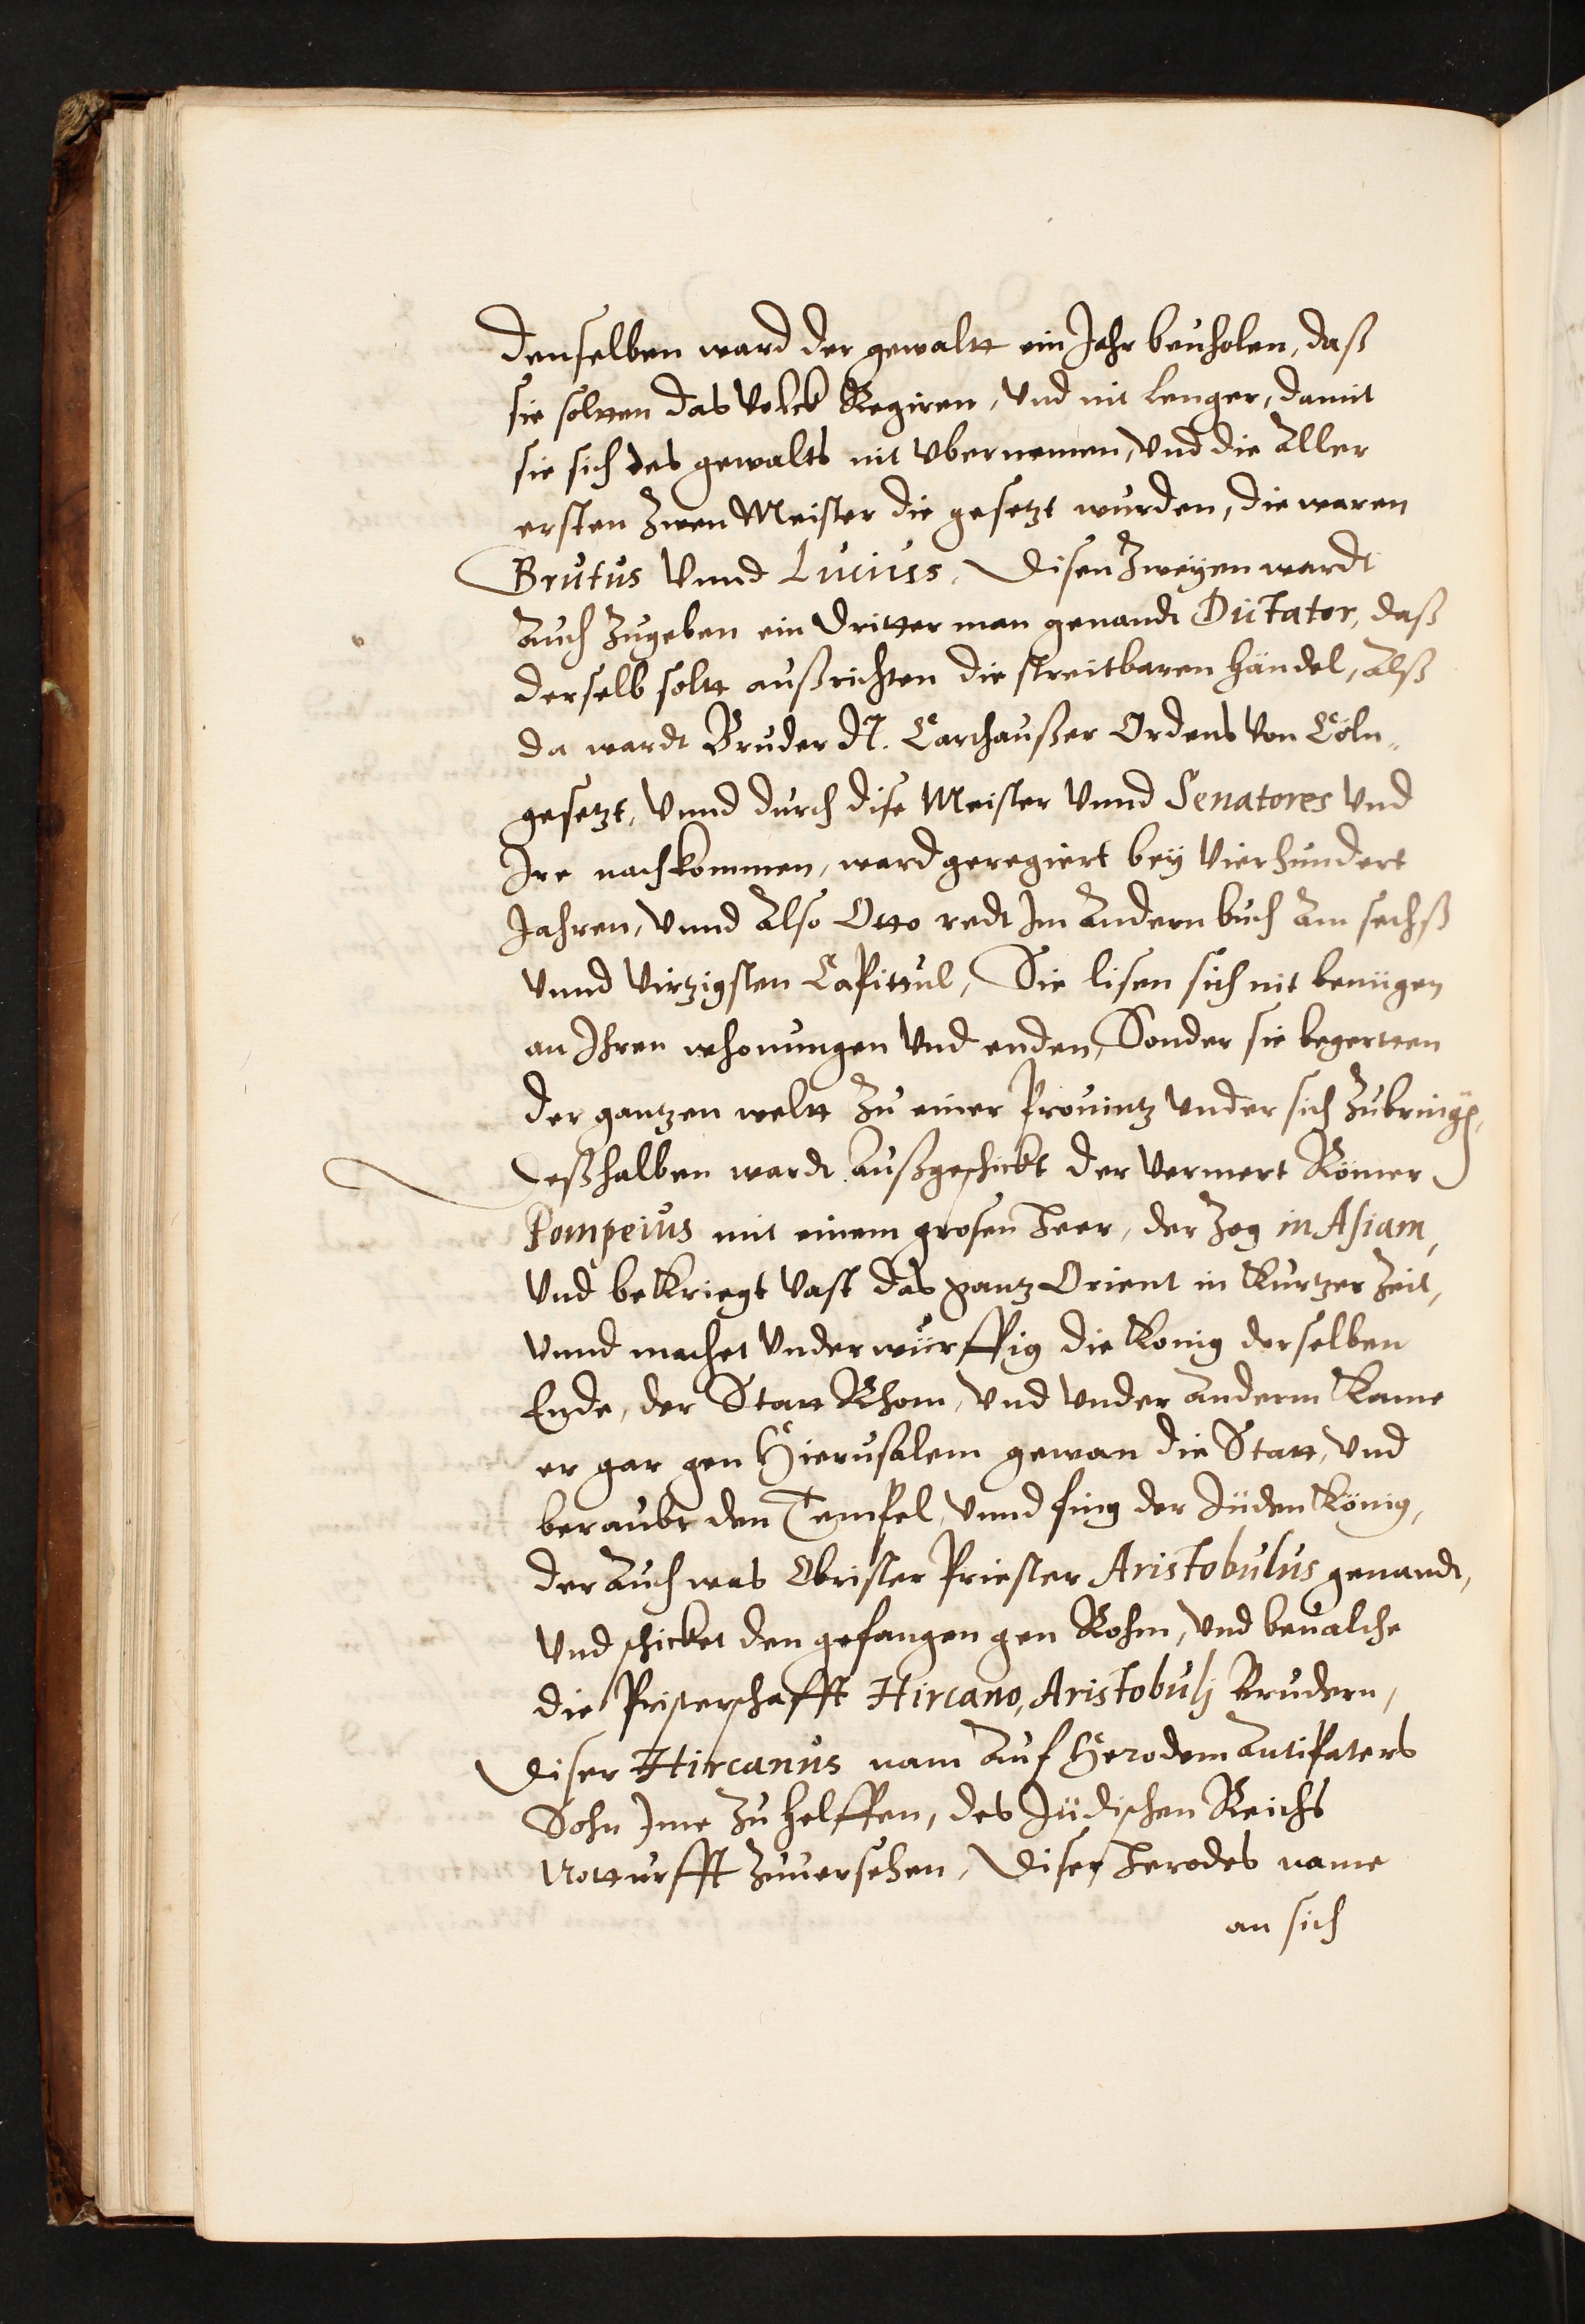 denselben ward der gewaltt ein Jahr beuholen, daß
sie soltten das Volck Regiren, Vnd nit lenger, damit
sie sich des gewalts nit vbernemen, Vnd die Aller
ersten Zwen Meister die gesetzt wurden, die waren
Brutus Vnnd Luciuss, Disen Zweÿen wardt
Auch Zugeben ein dritter man genandt Dictator, daß
derselb soltt außrichten die streitbaren händel, Alß
da wardt Bruder N. Carthaußer Ordens Von Cöln
gesetzt, Vnnd durch dise Meister Vnnd Senatores Vnd
Ire nachkommen, ward geregiert beÿ Vierhundert
Jahren, Vnnd Also Otto redt Im Andern buch Am sechß
Vnnd Virtzigsten Capittul, Sie lisen sich nit benügen
an Ihren whonungen Vnd enden, Sonder sie begertten
der gantzen weltt Zu einer Prouintz Vnder sich Zubringen,
Deßhalben wardt Außgeschickt der Vermert Römer
Pompeius mit einem grosen Heer, der Zog in Asiam,
Vnd bekriegt Vast das gantz Orient in kurtzer Zeit,
Vnnd machet Vnderwürffig die König derselben
Ende, der Statt Rhom, Vnd Vnder Anderm kame
er gar gen Hierusalem gewan die Statt, Vnd
beraubt den Tempel, Vnnd fing der Jüden König,
der Auch was Obrister Priester Aristobulus genandt,
Vnd schicket den gefangen gen Rohm, Vnd beualche
die Pristerschafft Hircano, Aristobulj Brudern,
Diser Hircanus nam Auf Herodem Antipaters
Sohn Ime Zu helffen, des Jüdischen Reichs
Notturfft Zuuersehen, Diser Herodes name
an sich